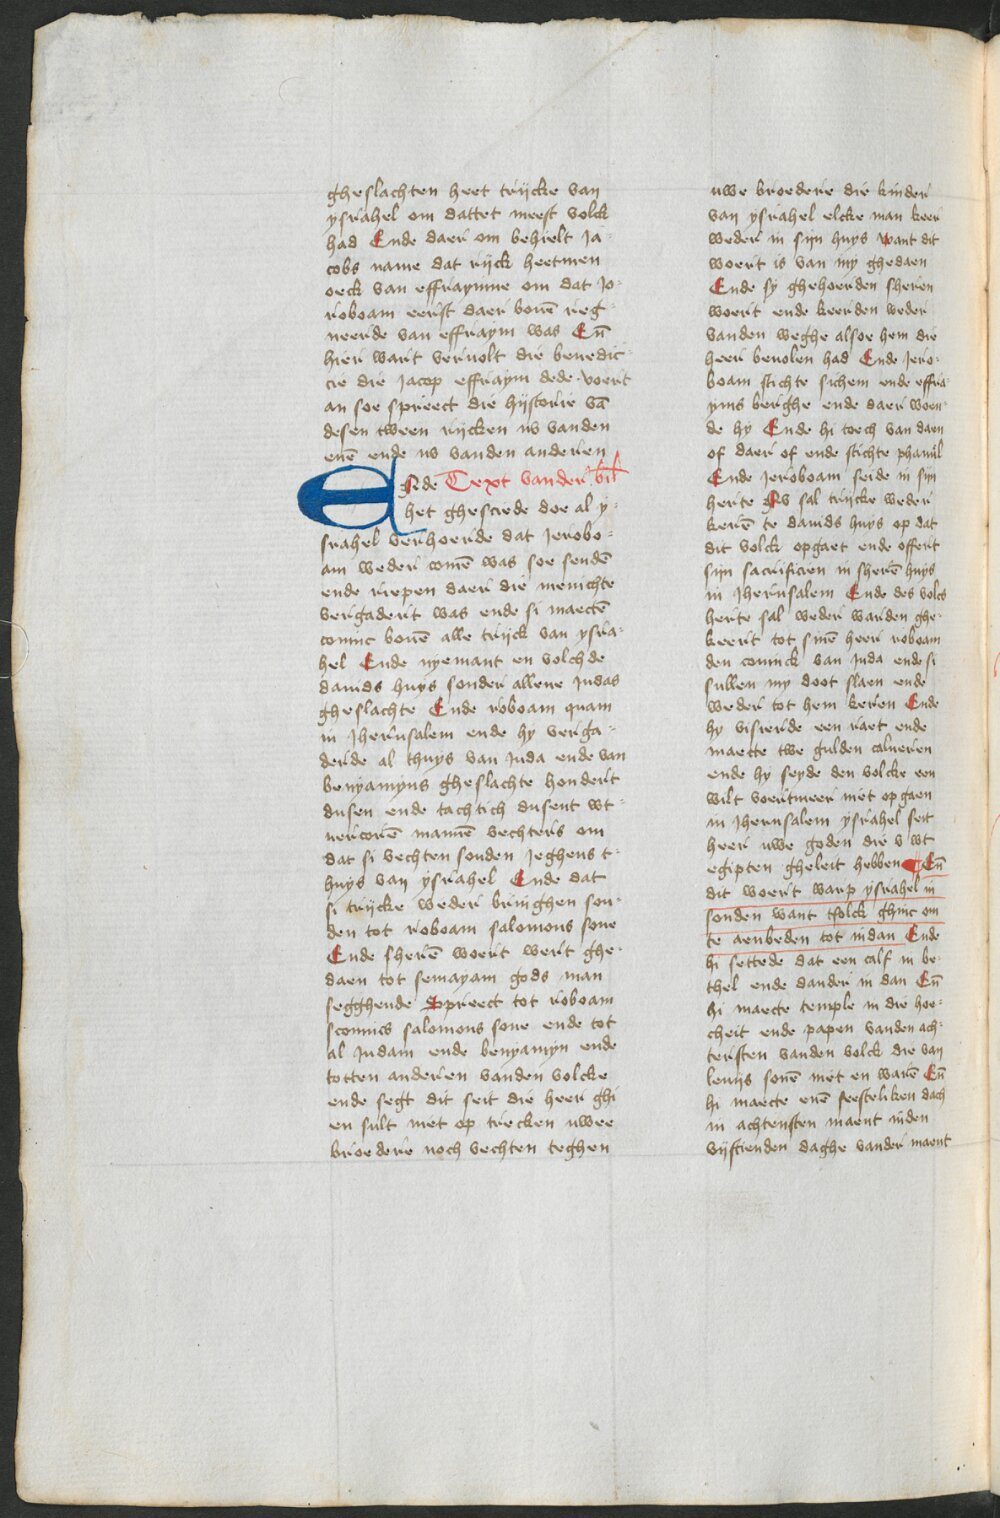 gheslachten heet trijcke van
ysrahel om dattet meest volck
had Ende daer om behielt Ja-
cobs name dat rijck heetmen
oeck van effraymme om dat Jo-
roboam eerst daer bouē reg-
neerde van effraym was Eñ
hier wart veruolt die benedic-
cie die Jacop effraym dede voert
an soe spreect die hijstorie vā
desen tween rijcken nv vanden
enē ende nv vanden anderen
ENde Text vander bibel
het ghesciede doe al y-
srahel verhoerde dat Jerobo-
am weder comē was soe sendē
ende riepen daer die menichte
vergadert was ende si maectē
coninc bouē alle trijck van ysra-
hel Ende nyemant en volchde
dauids huys sonder allene Judas
gheslachte Ende roboam quam
in Jherusalem ende hy verga-
derde al thuys van Juda ende van
benyamyns gheslachte hondert
dusen ende tachtich dusent wt-
uercorē mannē vechters om
dat si vechten souden Jeghens t-
huys van ysrahel Ende dat
si trijcke weder bringhen sou-
den tot roboam salomons sone
Ende sherē woert wert ghe-
daen tot semayam gods man
segghende Spreect tot roboam
sconincs salomons sone ende tot
al Judam ende benyamyn ende
totten anderen vanden volcke
ende segt dit seit die heer ghi
en sult niet op trecken uwee
broedere noch vechten teghen
uwe broedere die kinder
van ysrahel elcke man keer
weder in sijn huys want dit
woert is van my ghedaen
Ende sy ghehoerden sheren
woert ende keerden weder
vanden weghe alsoe hem die
heer beuolen had Ende Jero-
boam stichte sichem ende effra-
yms berghe ende daer woen-
de hy Ende hi toech van daen
of daer of ende stichte phanuel
Ende Jeroboam seide in sijn
herte Nv sal trijcke weder
kerē te dauids huys op dat
dit volck opgaet ende offert
sijn sacrificien in sherē huys
in Jherusalem Ende des volcs
herte sal weder warden ghe-
keert tot sinē heer roboam
den coninck van Juda ende si
sullen my doot slaen ende
weder tot hem keren Ende
hy visierde een raet ende
maecte twe gulden calueren
ende hy seyde den volcke een
wilt voertmeer niet op gaen
in Jherusalem ysrahel seit
heer uwe goden die v wt
egipten gheleit hebben Eñ
dit woert warp ysrahel in
sonden want tfolck ghinc om
te aenbeden tot in dan Ende
hi settede dat een calf in be-
thel ende dander in dan Eñ
hi maecte temple in die hoe-
cheit ende papen vanden ach-
tersten vanden volck die van
leuijs sonē niet en warē Eñ
hi maecte enē feesteliken dach
in achtensten maent inden
vijftienden daghe vander maent